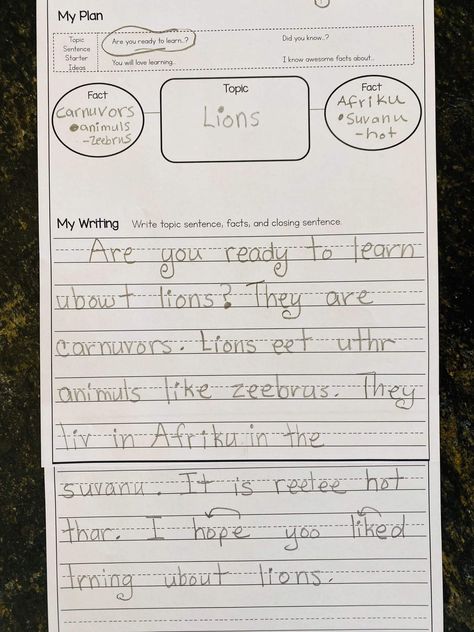 My Plan
Topic
Sentence
Starter
Ideas
Are you ready to learn..?
Did you know..?
You will love learning..
I know awesome facts about..
Fact
carnuvors
•animuls
-zeebrus
Topic
Lions
Fact
Afriku
•suvanu
-hot
My Writing Write topic sentence, facts, and closing sentence.
Are you ready to learn
ubowt lions? They are
carnuvors. Lions eet uthr
animuls like zeebrus. They
liv in Afriku in the
suvanu. It is reelee hot
thar. I hope yoo liked
lrning ubout lions.